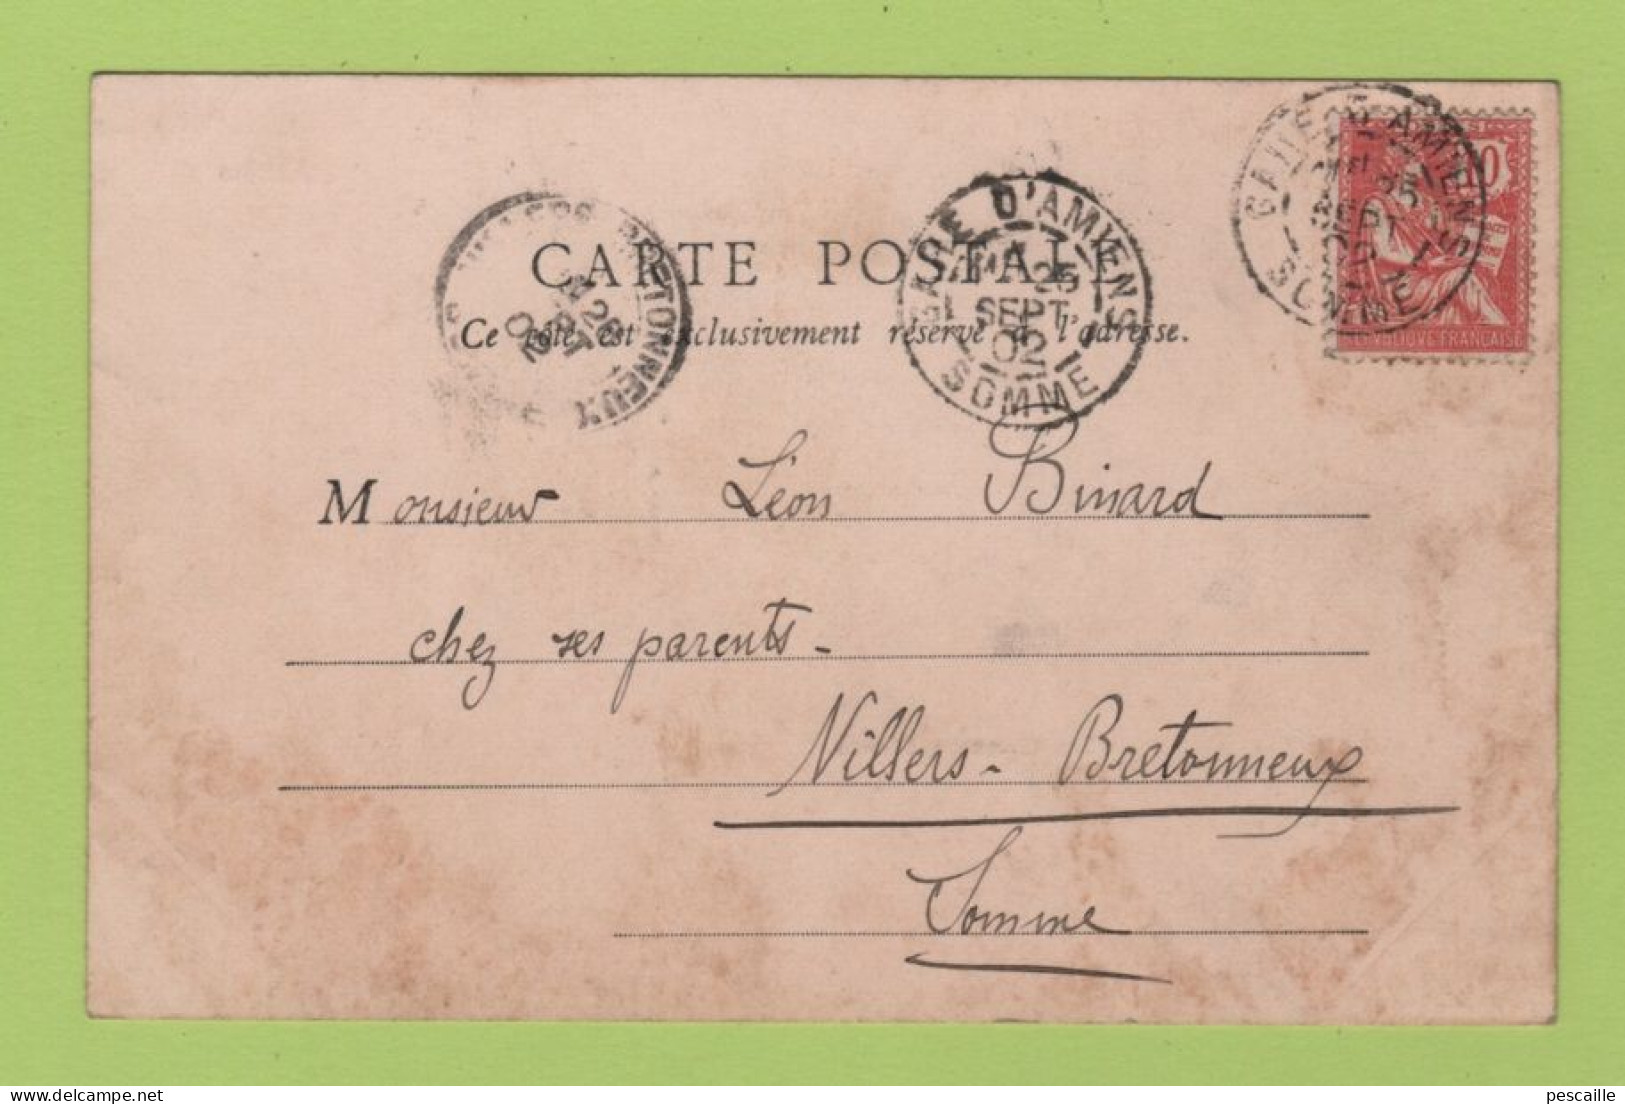 GARE D'AMIENS
25
SEPT
02
SOMME
GARE D'AMIENS
25
SEPT
02
SOMME
10
REPUBLIQUE FRANCAISE
VILLERS BRETONNEUX
26
SEPT
02
CARTE POSTALE
Ce côté est exclusivement réservé à l'adresse.
Monsieur Léon Binard
chez ses parents -
Villers - Bretonneux
Somme
delcampe.net
pescaille